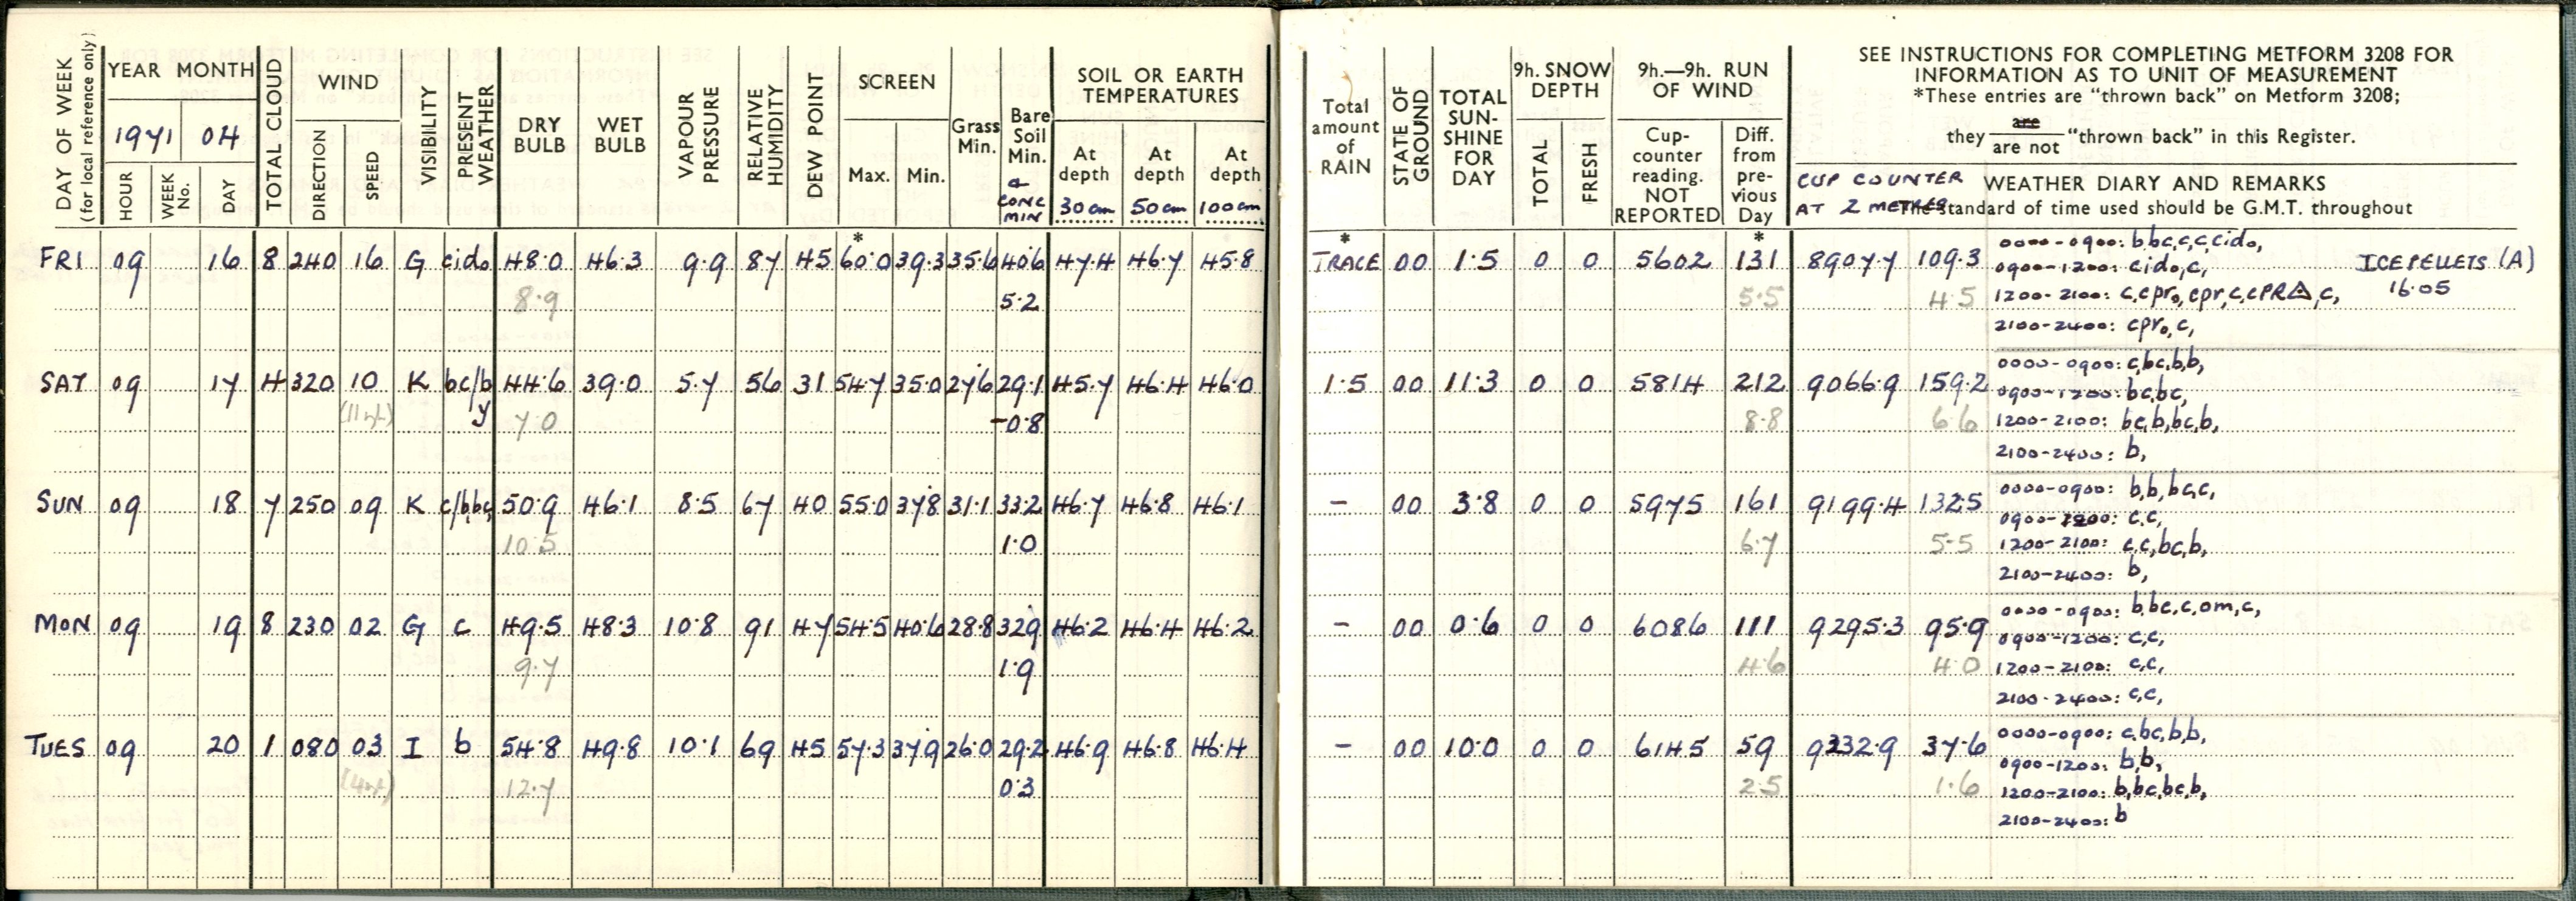 DAY OF WEEK
(for local reference only)
YEAR MONTH
1971 04
HOUR
WEEK No.
DAY
TOTAL CLOUD
WIND
DIRECTION
SPEED
VISIBILITY
PRESENT WEATHER
DRY BULB
WET BULB
VAPOUR PRESSURE
RELATIVE HUMIDITY
DEW POINT
SCREEN
Max. Min.
Grass Min.
Bare Soil Min.
& CONC MIN
SOIL OR EARTH TEMPERATURES
At depth 30cm
At depth 50cm
At depth 100cm
Total amount of RAIN
STATE OF GROUND
TOTAL SUN-SHINE FOR DAY
9h. SNOW DEPTH
TOTAL
FRESH
9h.—9h. RUN OF WIND
Cup-counter reading. NOT REPORTED
Diff. from pre-vious Day
SEE INSTRUCTIONS FOR COMPLETING METFORM 3208 FOR
INFORMATION AS TO UNIT OF MEASUREMENT
*These entries are "thrown back" on Metform 3208;
they are / are not "thrown back" in this Register.
CUP COUNTER
AT 2 METRES
WEATHER DIARY AND REMARKS
The standard of time used should be G.M.T. throughout
* * *
FRI 09 16 8 240 16 G cido 48.0 46.3 9.9 87 45 60.0 39.3 35.6 40.6 47.4 46.7 45.8 TRACE 00 1.5 0 0 5602 131 8907.7 109.3 0000-0900: b,bc,c,c,cido,
0900-1200: cido,c,
ICE PELLETS (A)
8.9 5.2 5.5 4.5 1200-2100: c,cpro,cpr,c,cPR△,c,
16.05
2100-2400: cpro,c,
SAT 09 17 4 320 10 K bc/b 44.6 39.0 5.7 56 31 54.7 35.0 27.6 29.1 45.7 46.4 46.0 1.5 00 11.3 0 0 5814 212 9066.9 159.2 0000-0900: c,bc,b,b,
0900-1200: bc,bc,
y 7.0 -0.8 8.8 6.6 1200-2100: bc,b,bc,b,
2100-2400: b,
SUN 09 18 7 250 09 K c/bbc 50.9 46.1 8.5 67 40 55.0 37.8 31.1 33.2 46.7 46.8 46.1 - 00 3.8 0 0 5975 161 9199.4 132.5 0000-0900: b,b,bc,c,
0900-1200: c,c,
10.5 1.0 6.7 5.5 1200-2100: c,c,bc,b,
2100-2400: b,
MON 09 19 8 230 02 G c 49.5 48.3 10.8 91 47 54.5 40.6 28.8 32.9 46.2 46.4 46.2 - 00 0.6 0 0 6086 111 9295.3 95.9 0000-0900: b,bc,c,om,c,
0900-1200: c,c,
9.7 1.9 4.6 4.0 1200-2100: c,c,
2100-2400: c,c,
TUES 09 20 1 080 03 I b 54.8 49.8 10.1 69 45 57.3 37.9 26.0 29.2 46.9 46.8 46.4 - 00 10.0 0 0 6145 59 9332.9 37.6 0000-0900: c,bc,b,b,
0900-1200: b,b,
12.7 0.3 2.5 1.6 1200-2100: b,bc,bc,b,
2100-2400: b